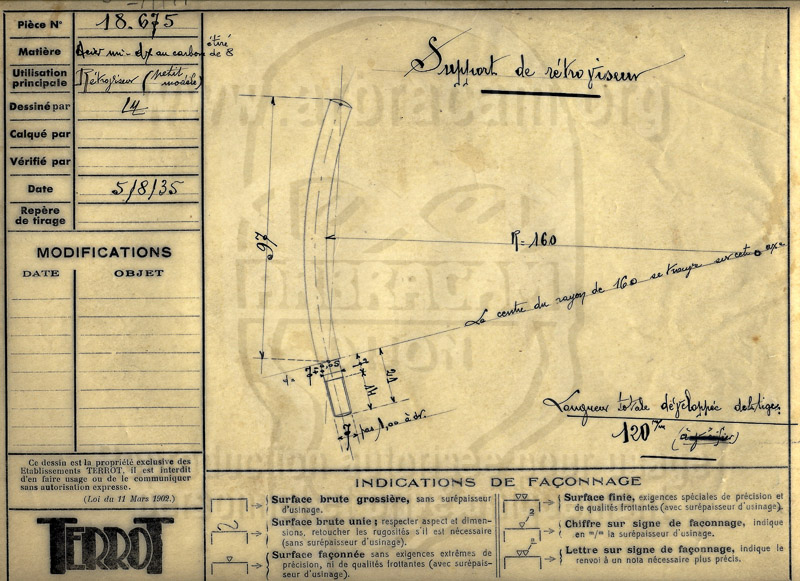 Pièce N° 18.675
Matière Acier mi-dx au carbone étiré de 8
Utilisation principale Rétroviseur (petit modèle)
Dessiné par
Calqué par
Vérifié par
Date 5/8/35
Repère de tirage
MODIFICATIONS
DATE OBJET
Support de rétroviseur
97
R=160
Le centre du rayon de 160 se trouve sur cet axe
7
21
7 pas 1,00 à dr.
Longueur totale développée de la tige
120 m/m (à vérifier)
Ce dessin est la propriété exclusive des
Etablissements TERROT, il est interdit
d'en faire usage ou de le communiquer
sans autorisation expresse.
(Loi du 11 Mars 1902.)
TERROT
INDICATIONS DE FAÇONNAGE
Surface brute grossière, sans surépaisseur
d'usinage.
Surface brute unie ; respecter aspect et dimen-
sions, retoucher les rugosités s'il est nécessaire
(sans surépaisseur d'usinage).
Surface façonnée sans exigences extrêmes de
précision, ni de qualités frottantes (avec surépais-
seur d'usinage).
Surface finie, exigences spéciales de précision et
de qualités frottantes (avec surépaisseur d'usinage).
Chiffre sur signe de façonnage, indique
en m/m la surépaisseur d'usinage.
Lettre sur signe de façonnage, indique le
renvoi à un nota nécessaire plus précis.
www.abracam.org
ABRACAM
DIJON